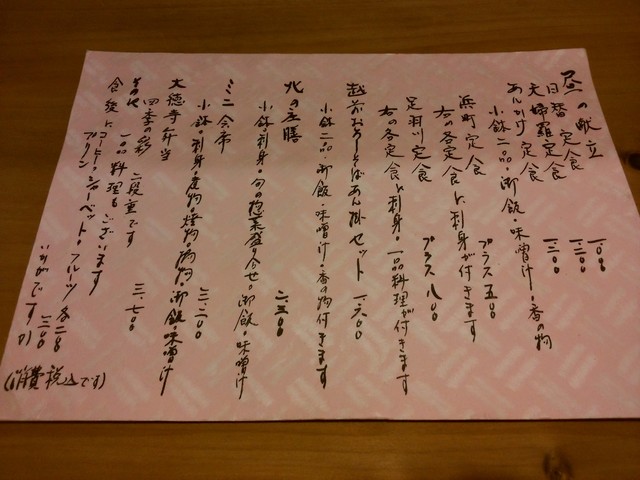 昼の献立
日替定食 一、〇〇〇
天婦羅定食 一、二〇〇
あんかけ定食 一、二〇〇
小鉢二品・御飯・味噌汁・香の物
浜町定食 プラス五〇〇
右の各定食に刺身が付きます
足羽川定食 プラス八〇〇
右の各定食に刺身・一品料理が付きます
越前おろしそばあん掛セット 一、六〇〇
小鉢二品・御飯・味噌汁・香の物付きます
北の庄膳 二、五〇〇
小鉢・刺身・旬の惣菜盛り合せ・御飯・味噌汁
ミニ会席
小鉢・刺身・煮物・焼物・揚物・御飯・味噌汁
大徳寺弁当
四季の彩 二段重です 三、七〇〇
その他 一品料理もございます
食後にコーヒー
プリン・シャーベット・フルーツ 各二〇〇
いかがですか
(消費税込です)